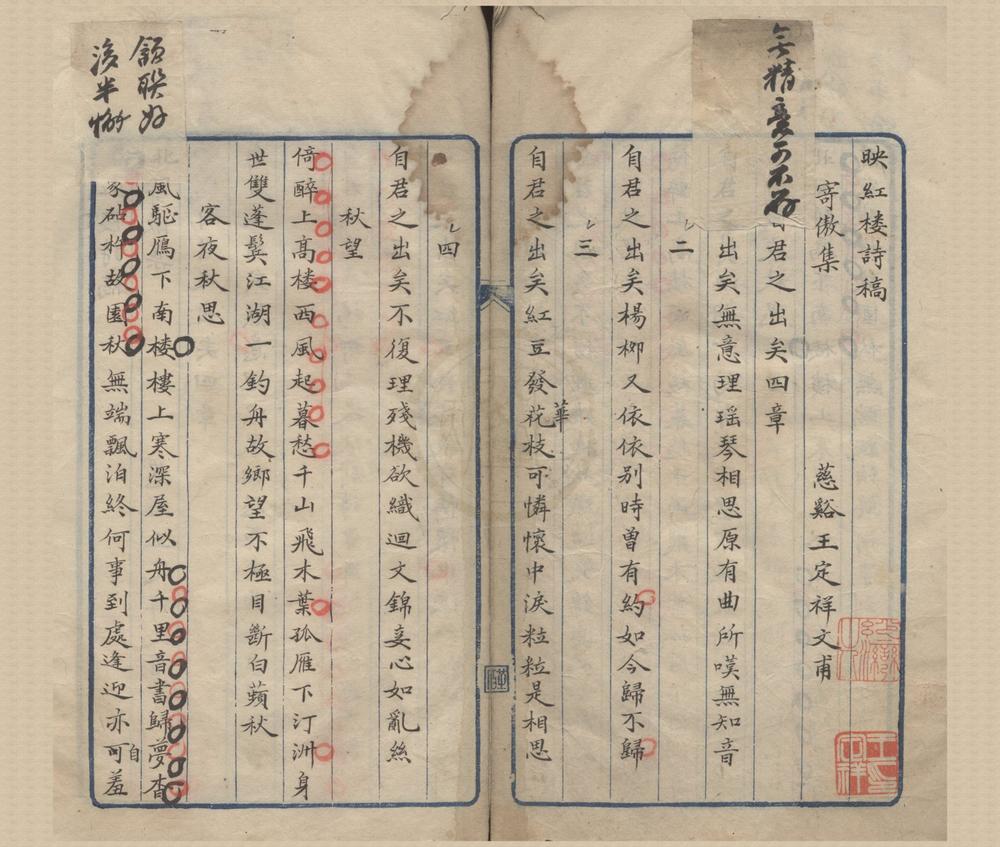 映紅楼詩稿
寄傲集
慈谿王定祥文甫
君之出矣四章
出矣無意理瑶琴相思原有曲所嘆無知音
二
自君之出矣楊柳又依依别時曽有約如今歸不歸
三
自君之出矣紅豆發花枝可憐懷中淚粒粒是相思
華
四
自君之出矣不復理殘機欲織迴文錦妾心如亂絲
秋望
倚醉上高楼西風起暮愁千山飛木葉孤雁下汀洲身
世雙蓬鬓江湖一釣舟故鄉望不極目斷白蘋秋
客夜秋思
北風駈鴈下南楼樓上寒深屋似舟千里音書歸夢杳
家砧杵故園秋無端飄泊終何事到處逢迎亦可羞
自
頷聯好
後半懈